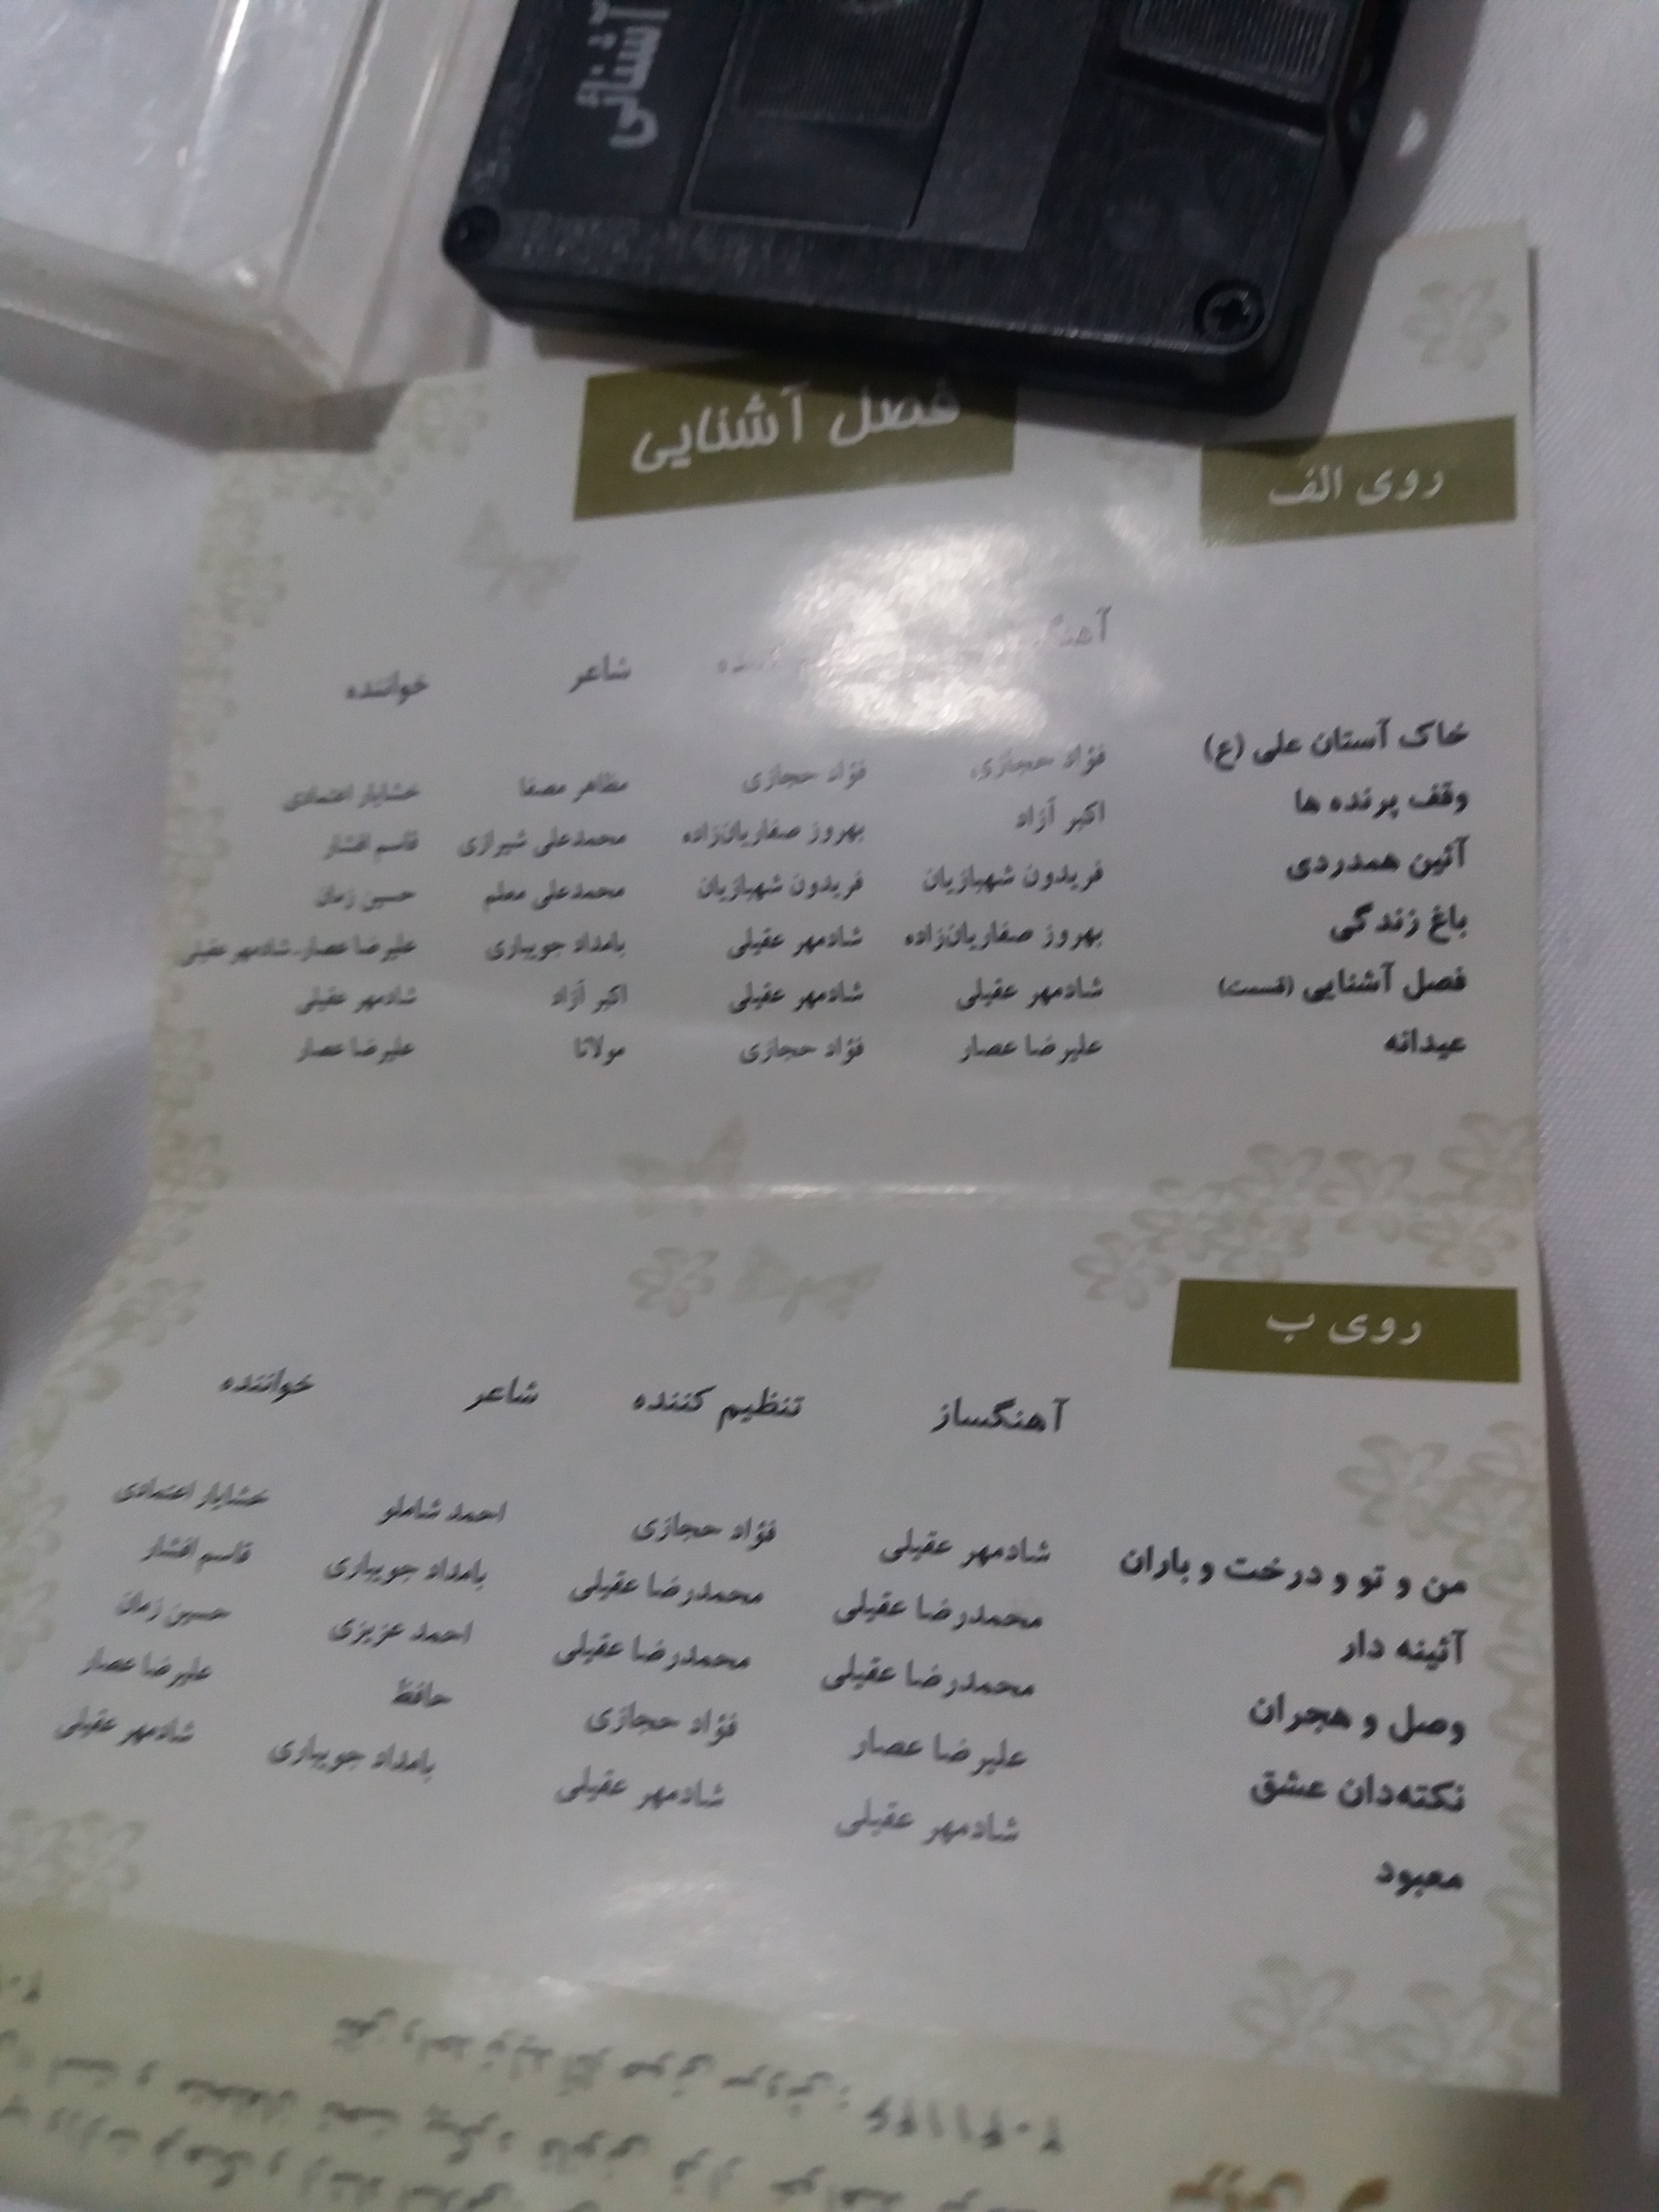 آشنائی
فصل آشنایی
روی الف
شاعر خواننده
خاک آستان علی (ع) فؤاد حجازی فؤاد حجازی مظاهر مصفا خشایار اعتمادی
وقف پرنده ها اکبر آزاد بهروز صفاریان‌زاده محمدعلی شیرازی قاسم افشار
آئین همدردی فریدون شهبازیان فریدون شهبازیان محمدعلی معلم حسین زمان
باغ زندگی بهروز صفاریان‌زاده شادمهر عقیلی بامداد جویباری علیرضا عصار-شادمهر عقیلی
فصل آشنایی (قسمت) شادمهر عقیلی شادمهر عقیلی اکبر آزاد شادمهر عقیلی
عیدانه علیرضا عصار فؤاد حجازی مولانا علیرضا عصار
روی ب
آهنگساز تنظیم کننده شاعر خواننده
من و تو و درخت و باران شادمهر عقیلی فؤاد حجازی احمد شاملو خشایار اعتمادی
آئینه دار محمدرضا عقیلی محمدرضا عقیلی بامداد جویباری قاسم افشار
وصل و هجران محمدرضا عقیلی محمدرضا عقیلی احمد عزیزی حسین زمان
نکته‌دان عشق علیرضا عصار فؤاد حجازی حافظ علیرضا عصار
معبود شادمهر عقیلی شادمهر عقیلی بامداد جویباری شادمهر عقیلی